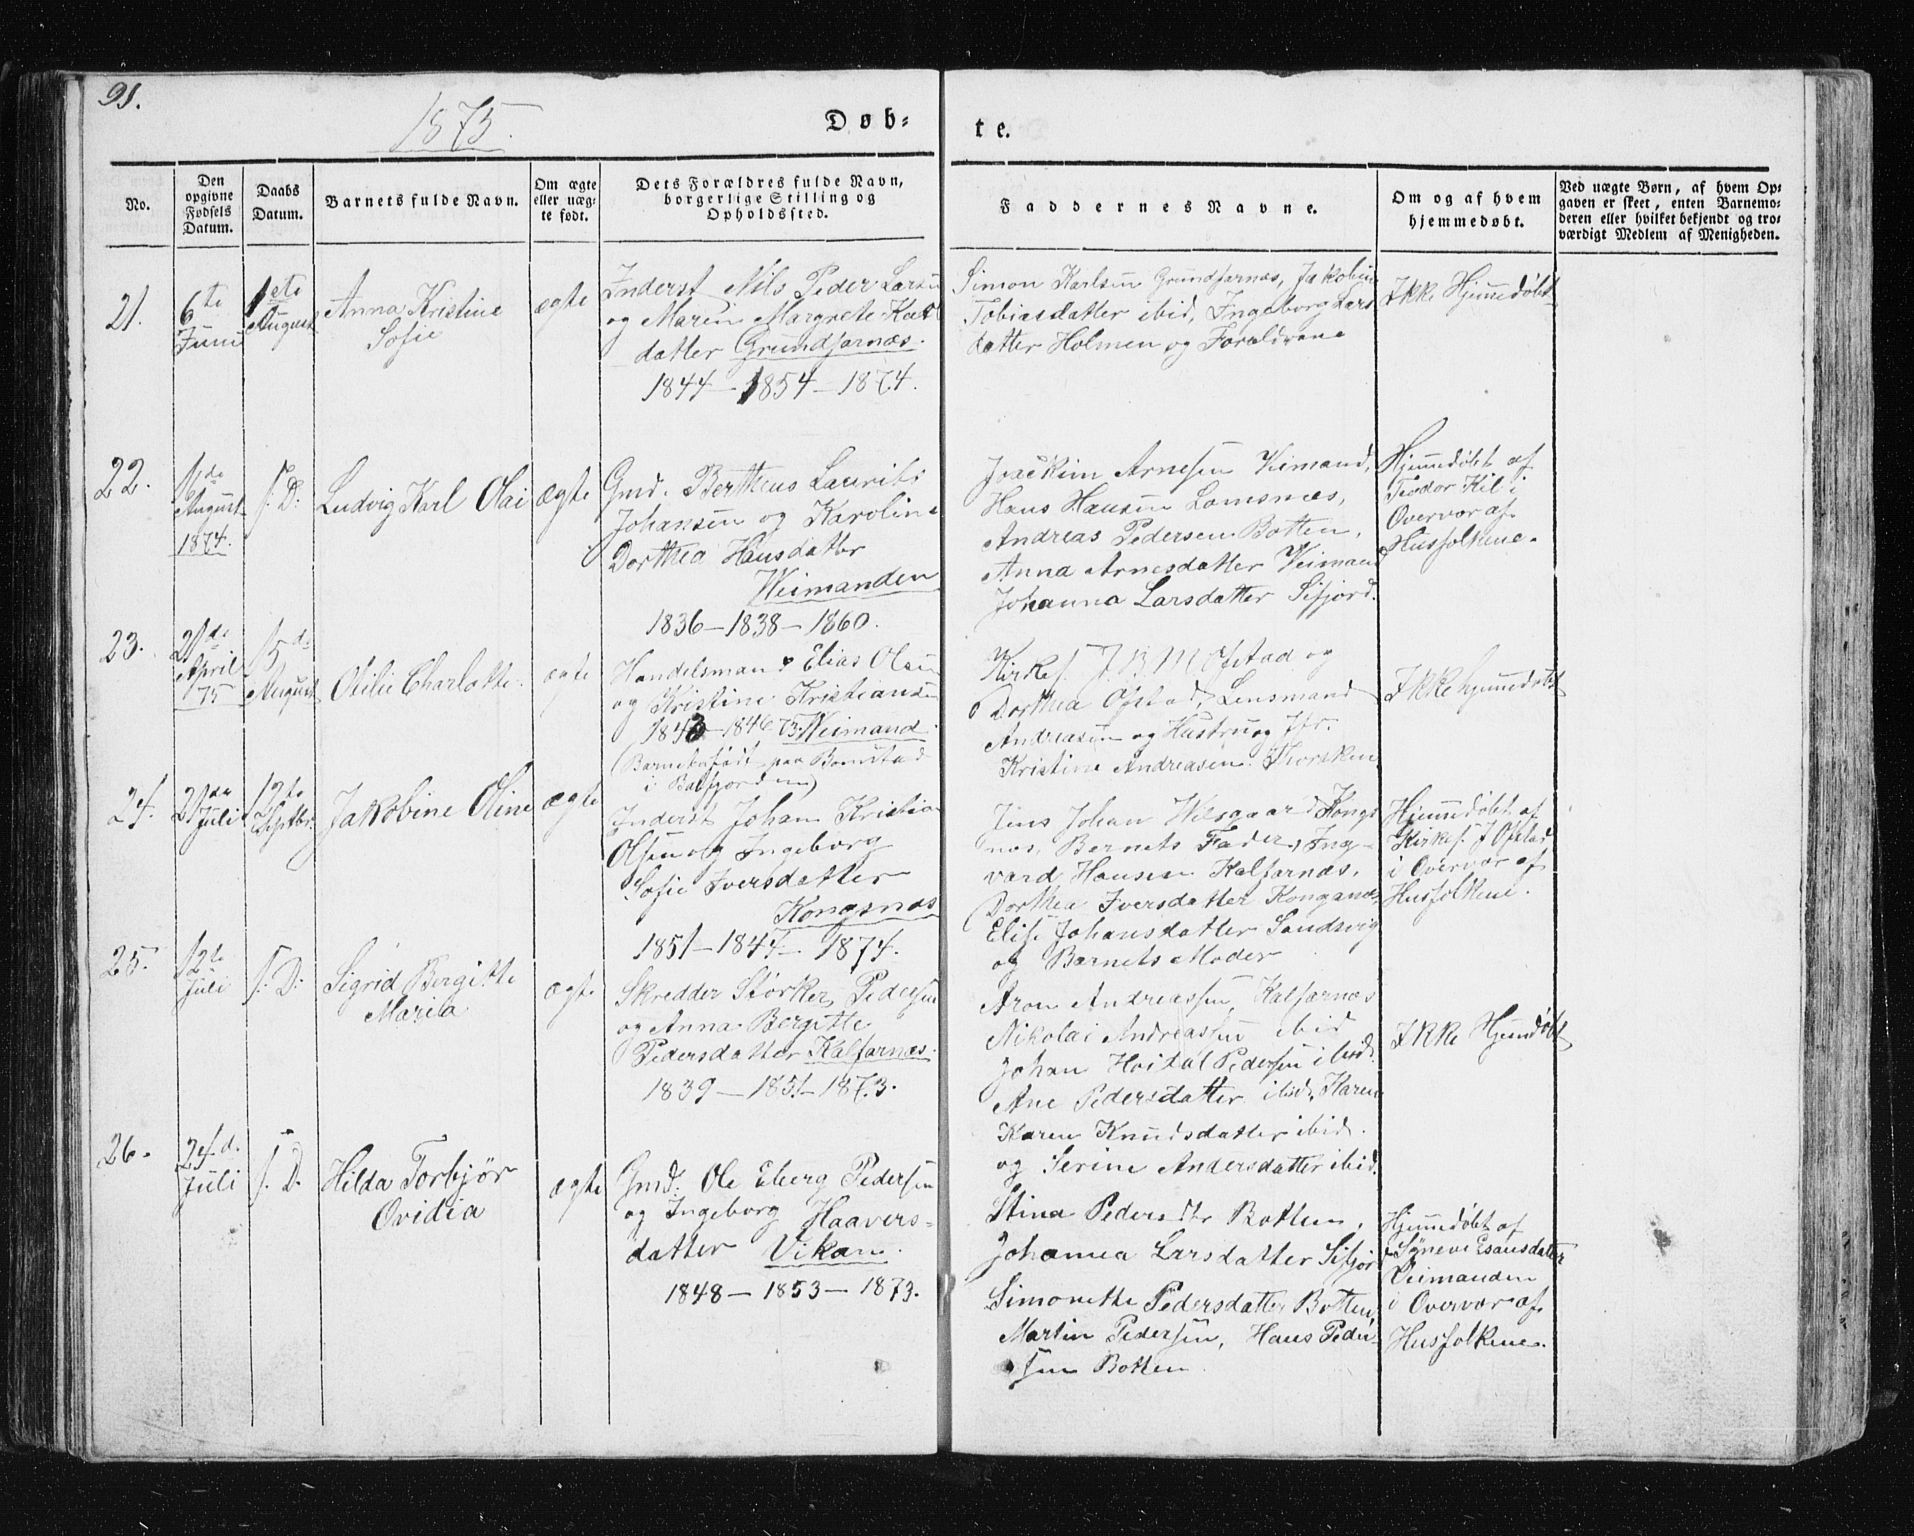 91.
1875.
Døb-
te.
No.
Den opgivne Fødsels Datum.
Daabs Datum.
Barnets fulde Navn.
Om ægte eller uægte født.
Dets Forældres fulde Navn, borgerlige Stilling og Opholdssted.
Faddernes Navne.
Om og af hvem hjemmedøbt.
Ved uægte Børn, af hvem Opgaven er skeet, enten Barnemoderen eller hvilket bekjendt og troværdigt Medlem af Menigheden.
21.
6te
Juni
1ste
August
Anna Kristine
Sofie
ægte
Inderst Nils Peder Larsen
og Maren Margrete Karl
datter Grundfarnæs.
1844 - 1854 - 1874.
Simon Karlsen Grundfarnæs, Jakobine
Tobiasdatter ibid, Ingeborg Lars
datter Holmen og Forældrene
Ikke Hjemmedøbt
22.
August
1874.
s. D:
Ludvig Karl Olai
ægte
Gmd. Bertheus Laurits
Johansen og Karoline
Dorthea Hansdatter
Weimanden
1836 - 1838 - 1860.
Joackim Arnesen Veimand,
Hans Hansen Lamsnæs,
Andreas Pedersen Botten,
Anna Arnesdatter Veimand
Johanna Larsdatter Sifjord.
Hjemmedøbt af
Teodor Kil i
Overvær af
Husfolkene.
23.
21de
April
75
15de
August
Otilie Charlotte.
ægte
Handelsmand Elias Olsen
og Kristine Kristiansen
1843 - 1846 73 Weimand.
(Barnet født paa
i Balsfjorden)
Kirkes. J. B. M Ofstad og
Dorthea Ofstad, Lensmand
Andreasen og Hustru og Jfr.
Kristine Andreasen. Thorsken
Ikke hjemmedøbt
24.
21de
Juli
12te
Septbr.
Jakobine Oline
ægte
Inderst Johan Kristian
Olsen og Ingeborg
Sofie Iversdatter
Kongsnæs
1851 - 1844 - 1874.
Jens Johan Wilsgaard Kongs
næs, Barnets Fader, Ing-
vard Hansen Kalfarnæs,
Dorthea Iversdatter Kongsnæs,
Elise Johansdatter Sandsvig
og Barnets Moder
Hjemmedøbt af
Kirkes. J Ofstad
i Overvær af
Husfolkene.
25.
12te
Juli
s. D:
Sigrid Bergitte
Maria
ægte
Skredder Størker Pedersen
og Anna Bergitte
Pedersdatter Kalfarnæs.
1839 - 1851 - 1873.
Aron Andreassen Kalfarnæs
Nikolai Andreassen ibid
Johan Hoidal Pedersen ibid.
Ane Pedersdatter ibid, Karen
Karen Knudsdatter ibid.
og Serine Andersdatter ibid.
Ikke Hjemdøbt
26.
24d.
Juli
s. D.
Hilda Torbjør
Ovidia
ægte
Gmd. Ole Eberg Pedersen
og Ingeborg Haavers-
datter Vikan.
1848 - 1853 - 1873.
Stina Pedersdtr Botten,
Johanna Larsdatter Sifjord
Simonette Pedersdatter Botten,
Martin Pedersen, Hans Peder
sen Botten
Hjemmedøbt af
Synevi Esausdatter
Veimanden
i Overvær af
Husfolkene.